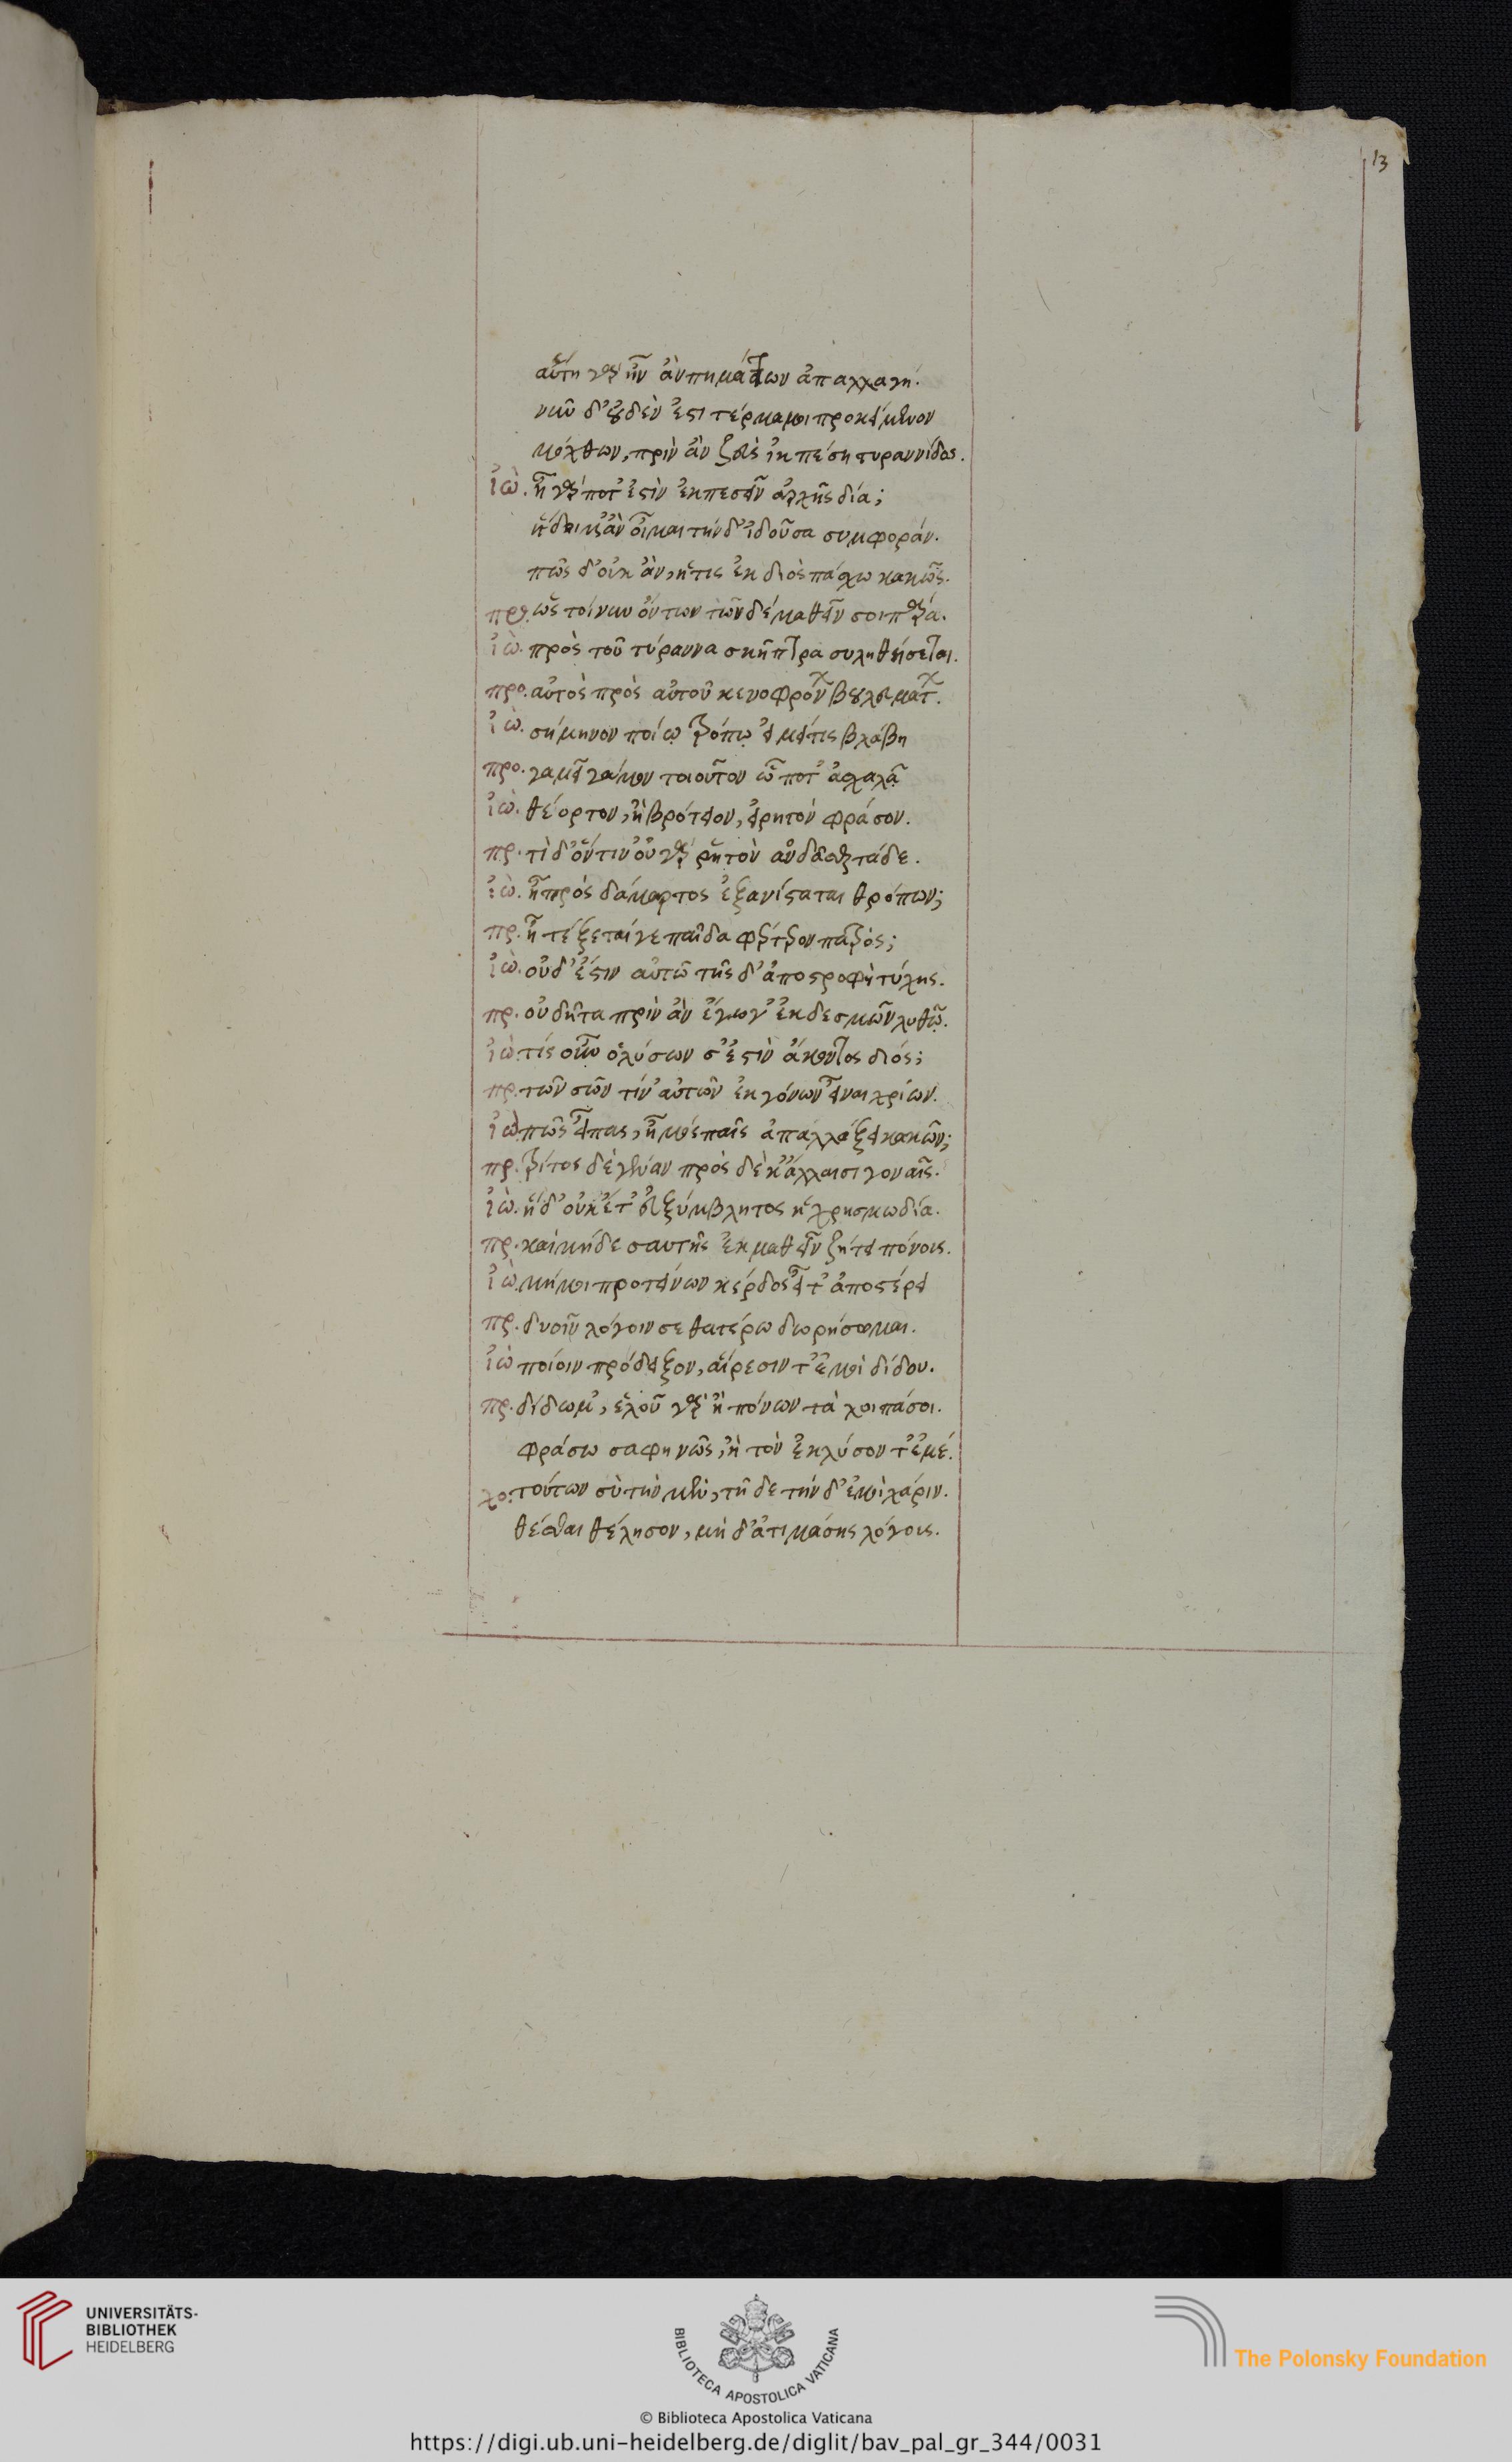 13
αὕτη γὰρ ἦν ἂν πημάτων ἀπαλλαγή.
νῦν δ' οὐδέν ἐστι τέρμα μοι προκείμενον
μόχθων, πρὶν ἂν ζεὺς ἐκπέση τυραννίδος.
ἰὼ. ἦ γάρ ποτ' ἐστὶν ἐκπεσεῖν ἀρχῆς δία;
ἥδοιμ' ἂν οἶμαι τήνδ' ἰδοῦσα συμφοράν.
πῶς δ' οὐκ ἂν, ἥτις ἐκ διὸς πάσχω κακῶς.
προ. ὡς τοίνυν ὄντων τῶνδέ μαθεῖν σοι πάρα.
ἰὼ. πρὸς τοῦ τύραννα σκῆπτρα συληθήσεται.
προ. αὐτὸς πρὸς αὐτοῦ κενοφρόν βουλευματ.
ἰὼ. σήμηνον ποίῳ τρόπῳ εἰ μείτις βλάβη
προ. γαμεῖ γάμον τοιοῦτον ᾧ ποτ' ἀσχαλᾷ
ἰὼ. θέορτον, ἢ βρότειον, εἰ ρητὸν φράσον.
πρ. τὶ δ' ὅντιν' οὐ γὰρ ρητὸν αὐδᾶσθαι τάδε.
ἰὼ. ἦ πρὸς δάμαρτος ἐξανίσταται θρόπων;
πρ. ἣ τέξεται γε παῖδα φέρτερον πατρός;
ἰὼ. οὐδ' ἔστιν αὐτῶ τῆσδ' ἀποστροφὴ τύχης.
πρ. οὐ δῆτα πρὶν ἂν ἔγωγ' ἐκ δεσμῶν λυθῶ.
ἰὼ. τίς οὖν ὁ λύσων σ' ἐστὶν ἄκοντος διός;
πρ. τῶν σῶν τίν' αὐτῶν ἐκγόνων εἶναι χρίων.
ἰὼ πῶς εἶπας, ἦ μὸς παῖς ἀπαλλάξει κακῶν;
πρ. τρίτος δὲ γένναν πρὸς δὲκ' ἄλλαισι γοναῖς.
ἰὼ. ἥδ' οὐκ ἔτ' εὐξύμβλητος ἡ χρησμωδία.
πρ. καὶ μήδε σαυτῆς ἐκμαθεῖν ζήτει πόνους.
ἰὼ. μή μοι προτείνων κέρδος εἶτ' ἀποστέρει
πρ. δυοῖν λόγοιν σε θατέρω δωρήσομαι.
ἰὼ ποίοιν πρόδειξον, αἵρεσιν τ' ἐμοὶ δίδου.
πρ. δίδωμ', ἑλοῦ γὰρ ἢ πόνων τὰ λοιπά σοι.
φράσω σαφηνῶς, ἢ τὸν ἐκλύσοντ' ἐμέ.
χο. τούτων σὺ τὴν μὲν, τῆδε τὴν δ' ἐμοὶ χάριν.
θέσθαι θέλησον, μὴ δ' ἀτιμάσης λόγοις.
UNIVERSITÄTS-
BIBLIOTHEK
HEIDELBERG
BIBLIOTECA APOSTOLICA VATICANA
The Polonsky Foundation
© Biblioteca Apostolica Vaticana
https://digi.ub.uni-heidelberg.de/diglit/bav_pal_gr_344/0031